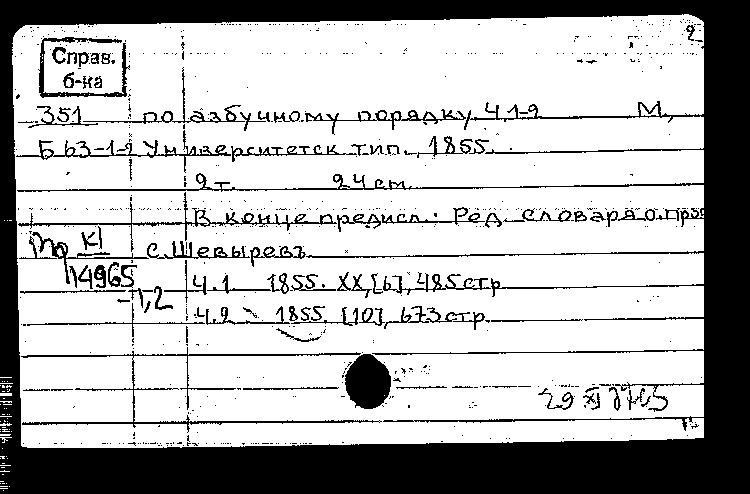 2
Справ.
б-ка
351 по азбучному порядку. Ч.1-2 М.,
Б 63-1-2 Университетск. тип., 1855.
2 т. 24 см.
В конце предисл.: Ред. словаря о. про
KI с. Шевыревъ
14965
-1,2
Ч.1 1855. XX, [6], 485 стр
Ч.2 1855. [10], 673 стр.
29 XI